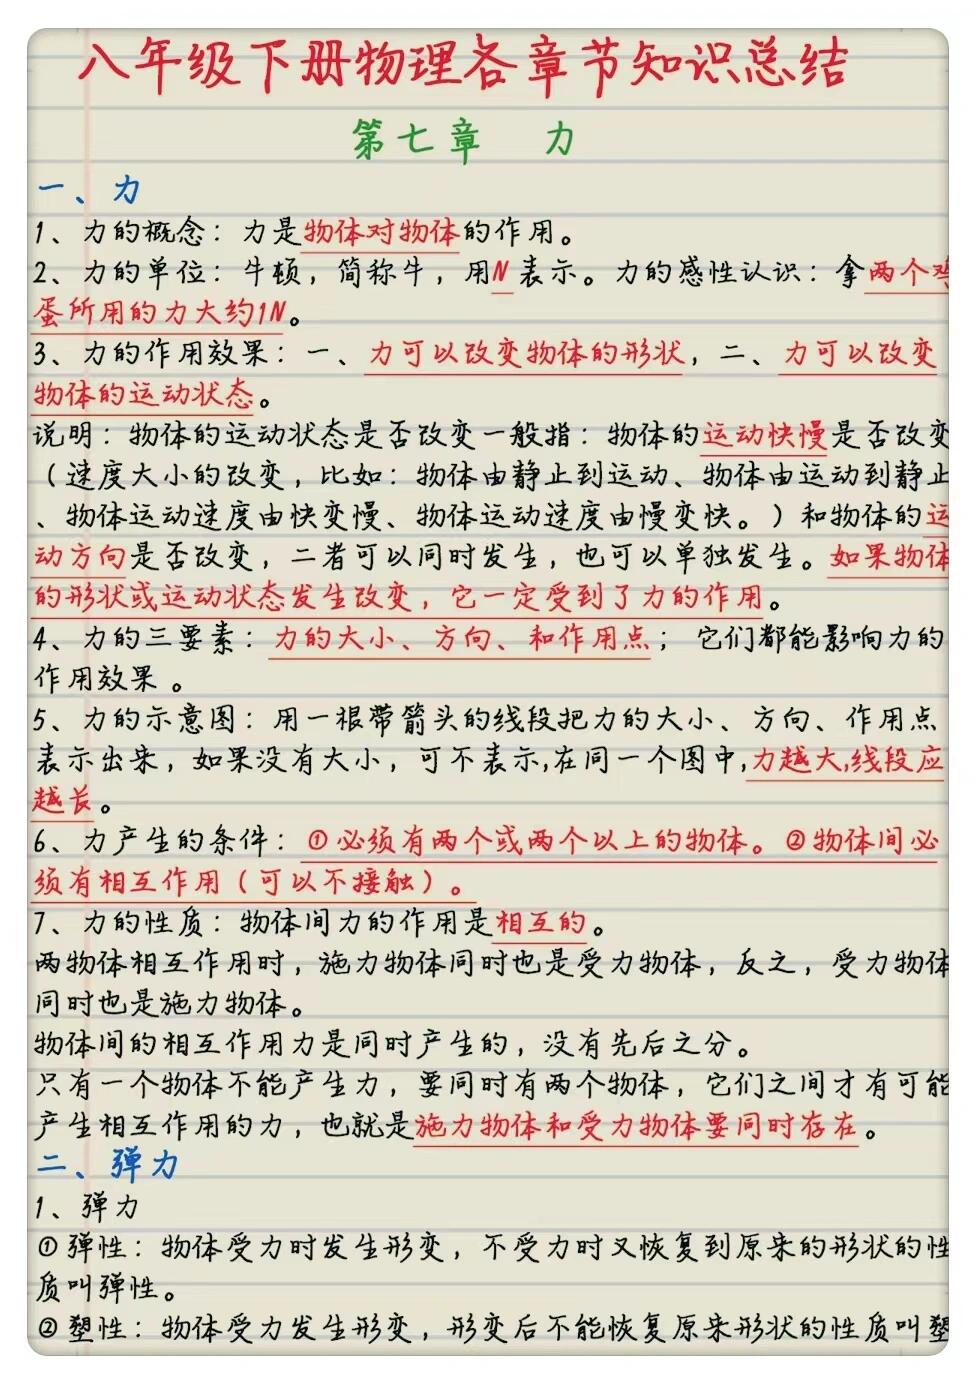 八年级下册物理各章节知识总结
第七章 力
一、力
1、力的概念：力是物体对物体的作用。
2、力的单位：牛顿，简称牛，用N表示。力的感性认识：拿两个鸡
蛋所用的力大约1N。
3、力的作用效果：一、力可以改变物体的形状，二、力可以改变
物体的运动状态。
说明：物体的运动状态是否改变一般指：物体的运动快慢是否改变
（速度大小的改变，比如：物体由静止到运动、物体由运动到静止
、物体运动速度由快变慢、物体运动速度由慢变快。）和物体的运
动方向是否改变，二者可以同时发生，也可以单独发生。如果物体
的形状或运动状态发生改变，它一定受到了力的作用。
4、力的三要素：力的大小、方向、和作用点；它们都能影响力的
作用效果。
5、力的示意图：用一根带箭头的线段把力的大小、方向、作用点
表示出来，如果没有大小，可不表示,在同一个图中,力越大,线段应
越长。
6、力产生的条件：①必须有两个或两个以上的物体。②物体间必
须有相互作用（可以不接触）。
7、力的性质：物体间力的作用是相互的。
两物体相互作用时，施力物体同时也是受力物体，反之，受力物体
同时也是施力物体。
物体间的相互作用力是同时产生的，没有先后之分。
只有一个物体不能产生力，要同时有两个物体，它们之间才有可能
产生相互作用的力，也就是施力物体和受力物体要同时存在。
二、弹力
1、弹力
①弹性：物体受力时发生形变，不受力时又恢复到原来的形状的性
质叫弹性。
②塑性：物体受力发生形变，形变后不能恢复原来形状的性质叫塑